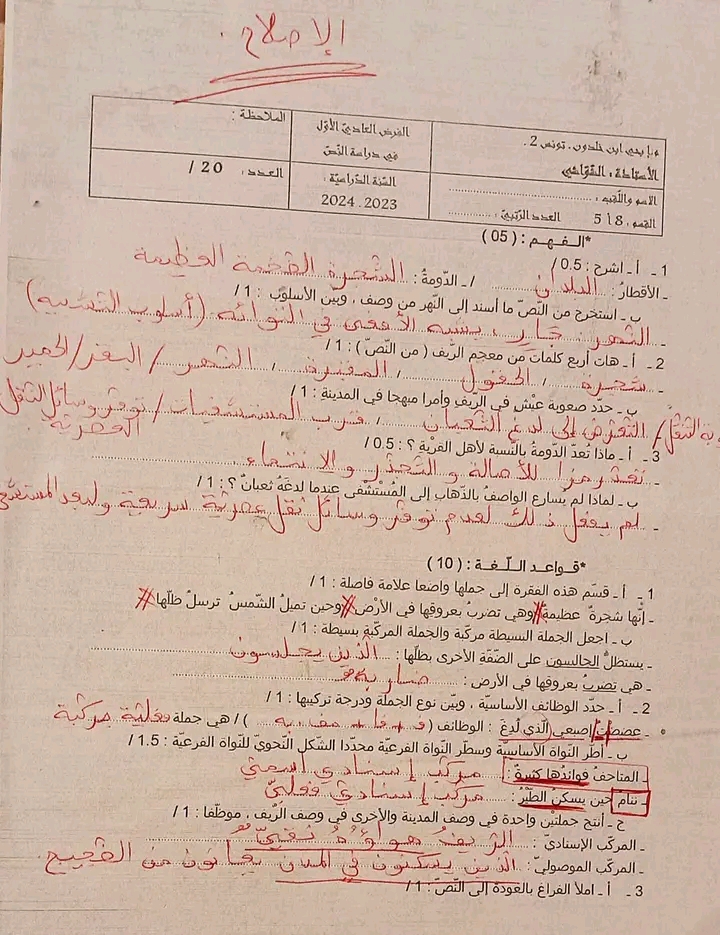 الإصلاح.
م.إ يحيى ابن خلدون. تونس 2.
الأستاذة : الشّواشي
الاسم واللّقب : ...........
القسم : 8 أ 5 العدد الرّتبيّ : ...........
الفرض العاديّ الأوّل
في دراسة النّصّ
السّنة الدّراسيّة :
2024.2023
الملاحظة :
العدد: 20 /
*الـفـهـم : (05)
1 _ أ _ اشرح : 0.5 /
_ الأقطارُ : البلدان / _ الدّومةُ : الشجرة الضخمة العظيمة
ب _ استخرج من النّصّ ما أسند إلى النّهر من وصف ، وبيّن الأسلوب : 1 /
_ النهر جبّار، يشبه الأفعى في التوائه (أسلوب التشبيه)
2 _ أ _ هات أربع كلمات من معجم الرّيف ( من النّصّ ) : 1 /
_ شجرة / الحقول / المقبرة / النهر / البقر / الحمير
ب _ حدّد صعوبة عيْش في الريف وأمرا مبهجا في المدينة : 1 /
التنقّل / التعرّض إلى لدغ الثعبان / قرب المستشفيات / توفّر وسائل النقل
العصريّة
3 _ أ _ ماذا تُعدّ الدّومةُ بالنّسبة لأهل القرْيةِ ؟ : 0.5 /
_ تعدّ رمزا للأصالة و التجذّر و الانتماء.
ب _ لماذا لم يُسارع الواصفُ بالذّهاب إلى المُسْتشْفى عندما لدغهُ ثعبانٌ ؟ : 1 /
_ لم يفعل ذلك لعدم توفّر وسائل نقل عصريّة سريعة ولبعد المستشفى
*قـواعـد الـلّـغـة : (10)
1 _ أ _ قسّم هذه الفقرة إلى جملها واضعا علامة فاصلة : 1 /
_ أنّها شجرةٌ عظيمةٌ // وهي تضربُ بعروقها في الأرْض // وحين تميلُ الشّمسُ ترسلُ ظلّها //
ب _ اجعل الجملة البسيطة مركّبة والجملة المركّبة بسيطة : 1 /
_ يستظلُّ الجالسون على الضّفّةِ الأخرى بظلّها : الّذين يجلسون
_ هي تضربُ بعروقها في الأرض : ضاربة
2 _ أ _ حدّد الوظائف الأساسيّة ، وبيّن نوع الجملة ودرجة تركيبها : 1 /
_ إصبعي الّذي لُدغ : الوظائف ( ف + فا + مف به ) / هي جملة فعليّة مركّبة
ب _ أطّر النّواة الأساسيّة وسطّر النّواة الفرعيّة محدّدا الشّكل النّحويّ للنّواة الفرعيّة : 1.5 /
_ المتاحفُ فوائدُها كثيرةٌ : مركّب إسنادي اسمي
_ ننامُ حين يسكنُ الطّيْرُ : مركّب إسنادي فعليّ
ج _ أنتج جملتيْن واحدة في وصف المدينة والأخرى في وصف الرّيف ، موظّفا : 1 /
_ المركّب الإسنادي : الريفُ هواؤُهُ نقيٌّ
_ المركّب الموصوليّ : الذين يسكنون في المدن يعانون من الضجيج
3 _ أ _ املأ الفراغ بالعوْدة إلى النّصّ : 1 /